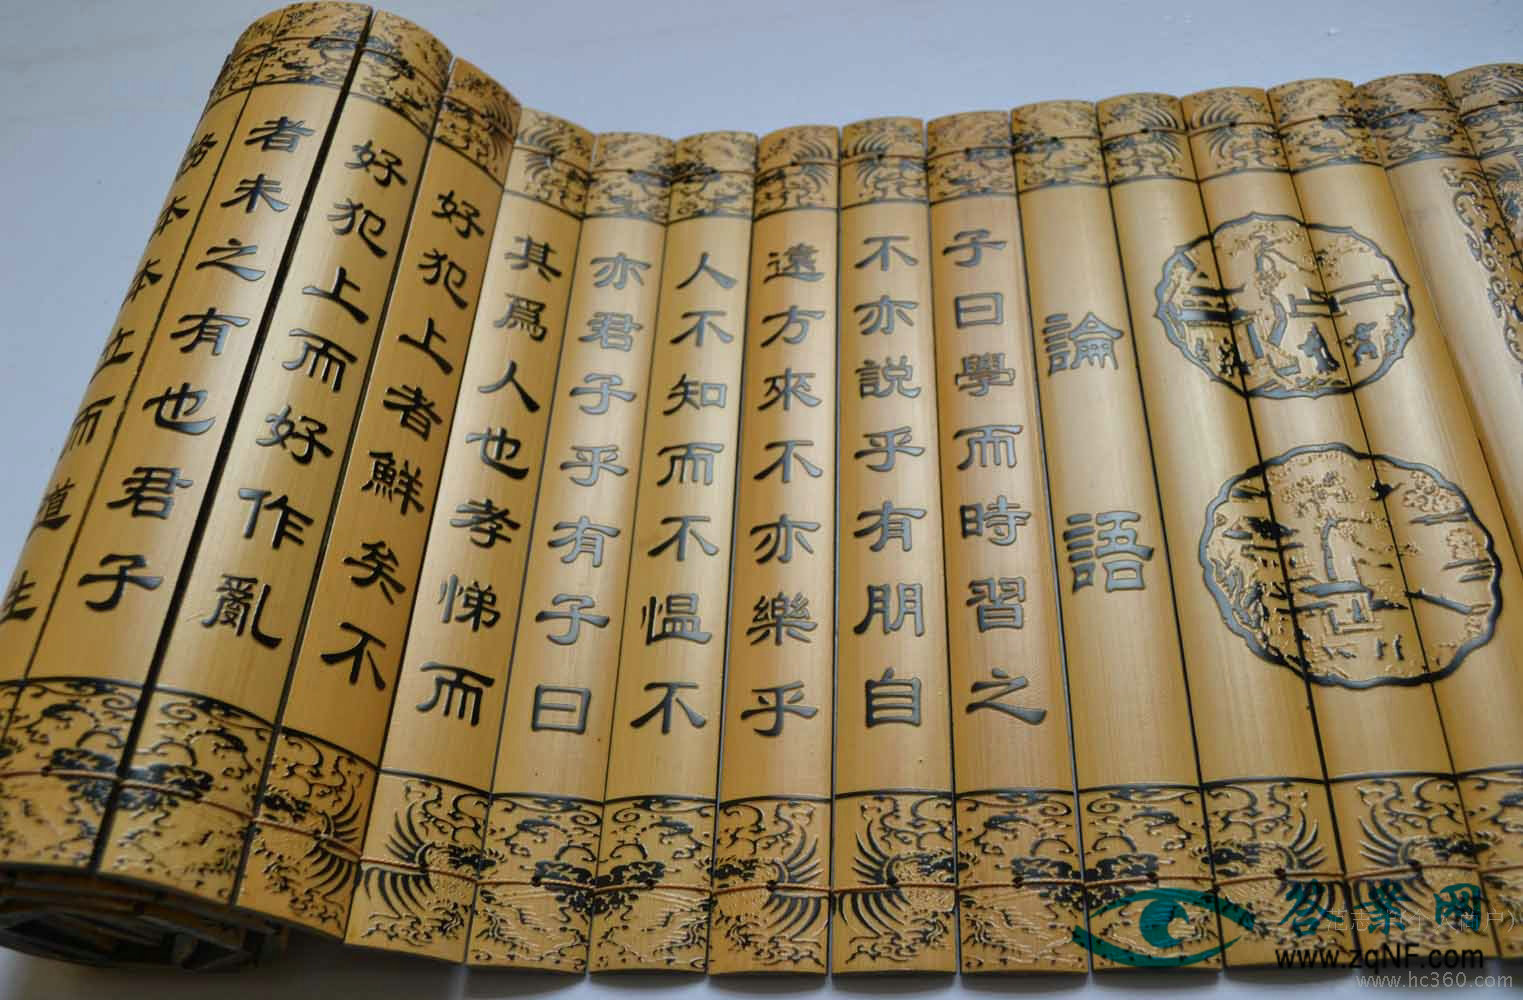 論語
子曰學而時習之
不亦説乎有朋自
遠方來不亦樂乎
人不知而不愠不
亦君子乎有子曰
其爲人也孝悌而
好犯上者鮮矣不
好犯上而好作亂
者未之有也君子
務本本立而道生
www.zgNF.com
www.hc360.com